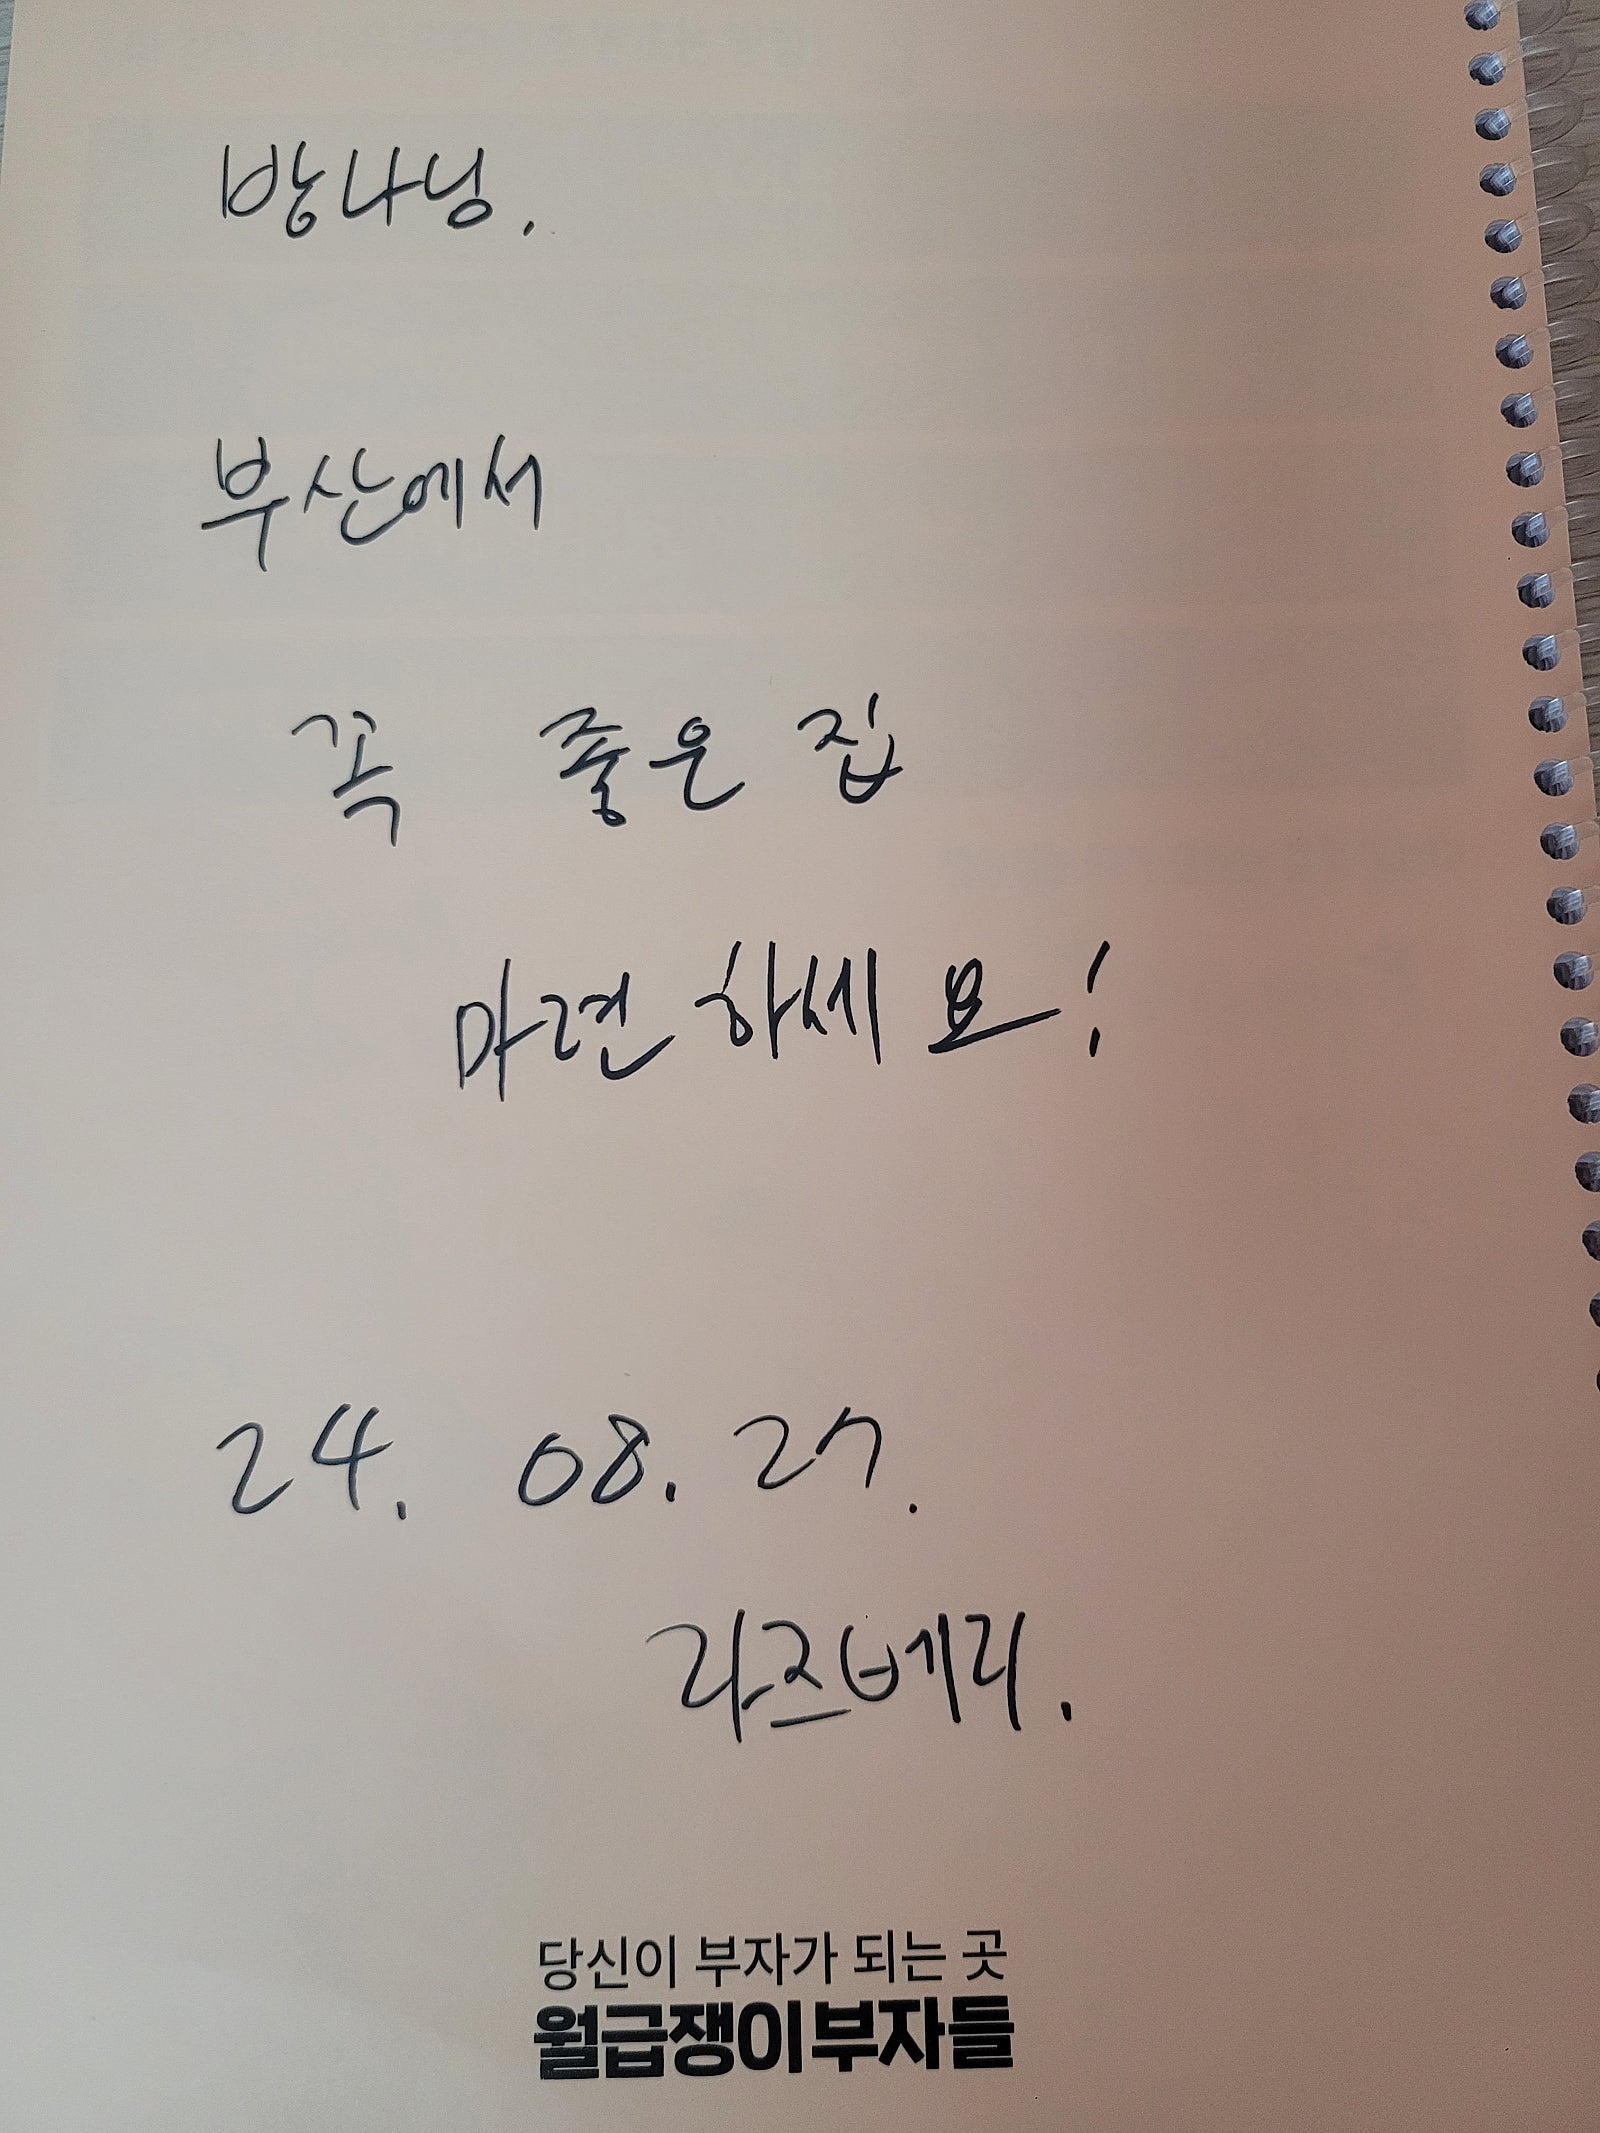 방나님.
부산에서
꼭 좋은 집
마련하세요!
24. 08. 27.
라즈베리.
당신이 부자가 되는 곳
월급쟁이부자들